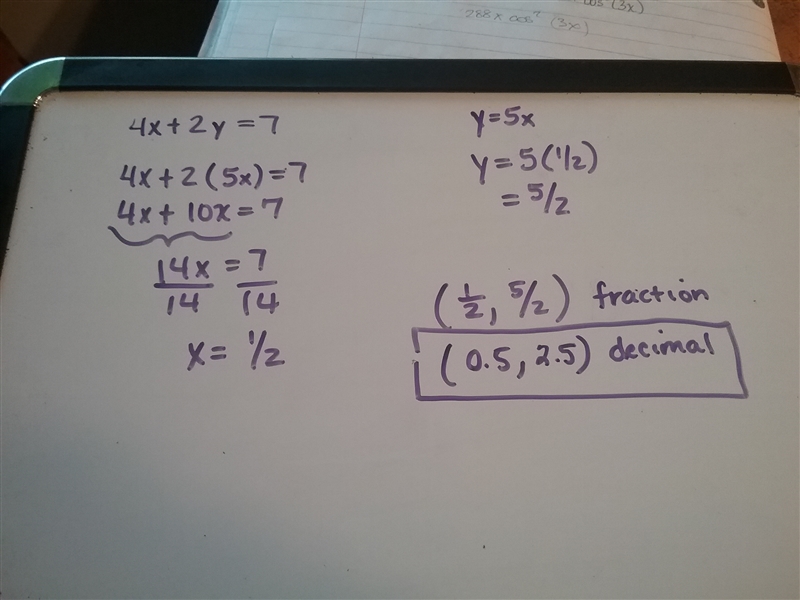 288x cos² (3x)
4x+2y=7
4x+2(5x)=7
4x+10x=7
14x = 7
14 14
x= 1/2
y=5x
y=5(1/2)
= 5/2
(1/2, 5/2) fraction
(0.5, 2.5) decimal